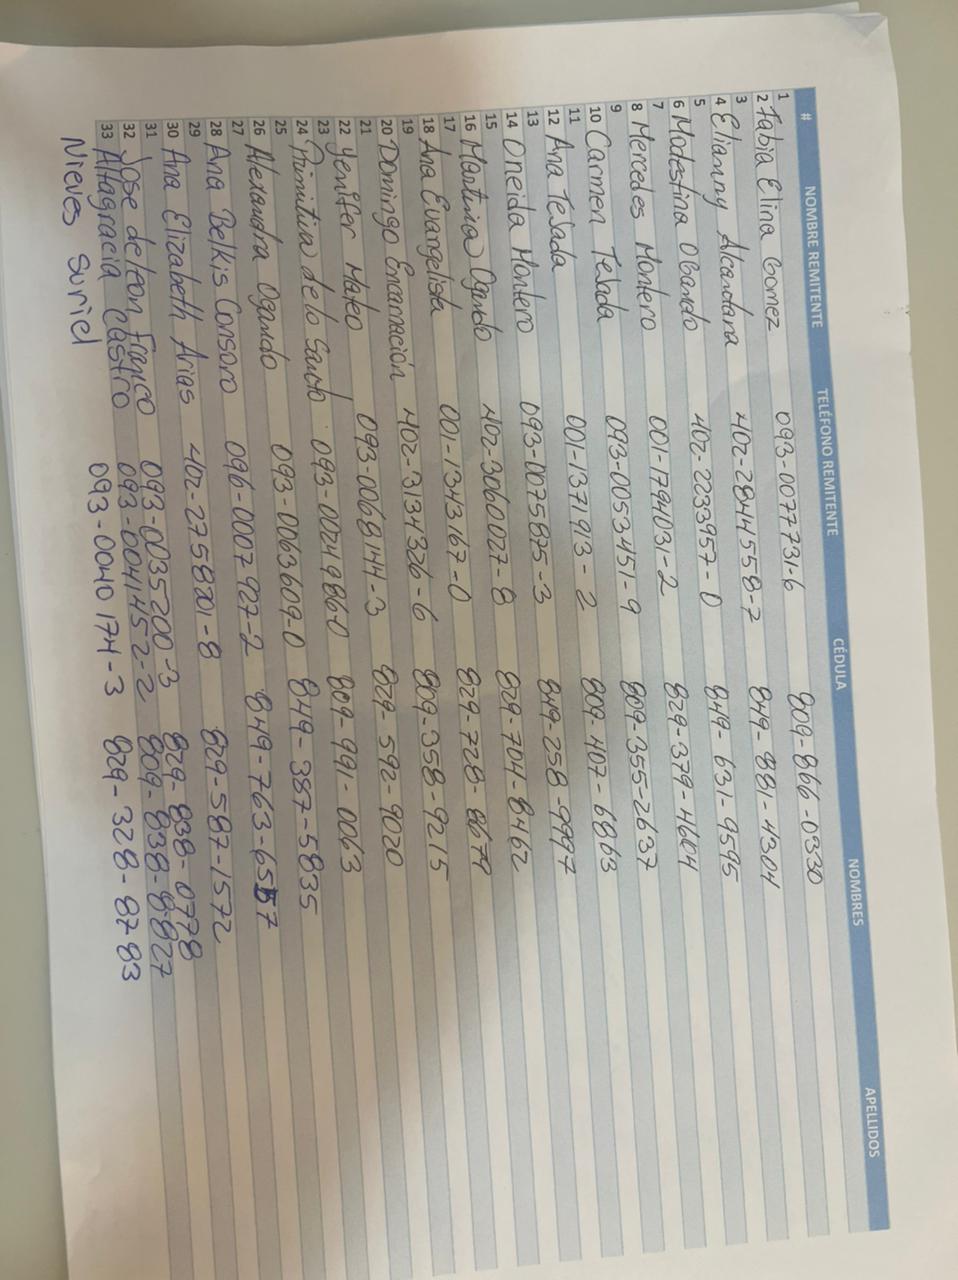 # NOMBRE REMITENTE TELÉFONO REMITENTE CÉDULA NOMBRES APELLIDOS
1
2 Fabia Elina Gomez 093-0077731-6 809-866-0330
3
4 Elianny Alcantara 402-2844558-7 849-881-4304
5
6 Modestina Obando 402-2233957-0 849-631-9595
7
8 Mercedes Montero 001-1794031-2 829-379-4604
9
10 Carmen Tejada 093-0053451-9 809-355-2637
11
12 Ana Tejada 001-1371913-2 809-407-6863
13
14 Oneida Montero 093-0075875-3 849-258-9997
15
16 Martina Ogando 402-3060027-8 829-704-8462
17
18 Ana Evangelista 001-1343167-0 829-728-8679
19
20 Domingo Encarnación 402-3134326-6 809-358-9215
21
22 Yenifer Mateo 093-0068144-3 829-592-9020
23
24 Primitiva de lo Santo 093-0024986-0 809-991-0063
25
26 Alexandra Ogando 093-0063609-0 849-387-5835
27
28 Ana Belkis Consoro 096-0007927-2 849-763-6587
29
30 Ana Elizabeth Arias 402-2758201-8 829-587-1572
31
32 Jose de leon Franco 093-0035200-3 829-838-0778
33 Altagracia Castro 093-0041452-2 809-838-8827
Nieves Suriel 093-0040174-3 829-328-8783